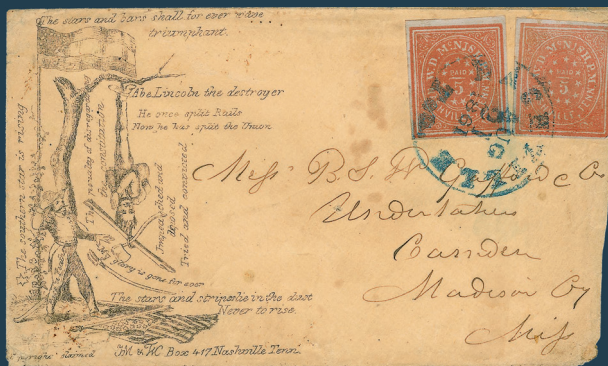 The stars and bars shall for ever wave
triumphant.
Abe Lincoln the destroyer
He once split Rails
Now he has split the Union
The penalty of
the constitution
The southern star is rising
Impeached and
deposed
Tried and convicted
My glory is gone for ever
The stars and stripes lie in the dust
Never to rise.
& WC Box 417. Nashville Tenn.
W.D. McNISH. P.M.
PAID
5
NASHVILLE
W.D. McNISH. P.M.
PAID
5
TENN.
AUG
1861
Miss B. S.
Undertakers
Camden
Madison Cy
Miss